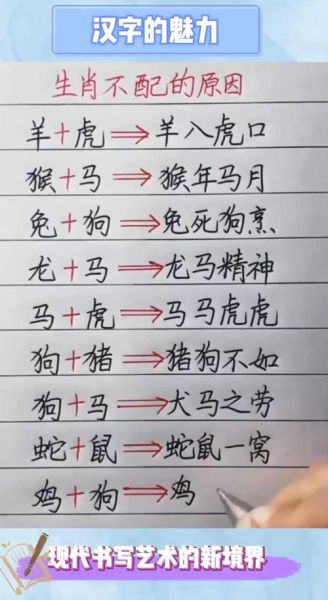 汉字的魅力
生肖不配的原因
羊+虎⇒羊入虎口
猴+马⇒猴年马月
兔+狗⇒兔死狗烹
龙+马⇒龙马精神
马+虎⇒马马虎虎
狗+猪⇒猪狗不如
狗+马⇒犬马之劳
蛇+鼠⇒蛇鼠一窝
鸡+狗⇒鸡
现代书写艺术的新境界